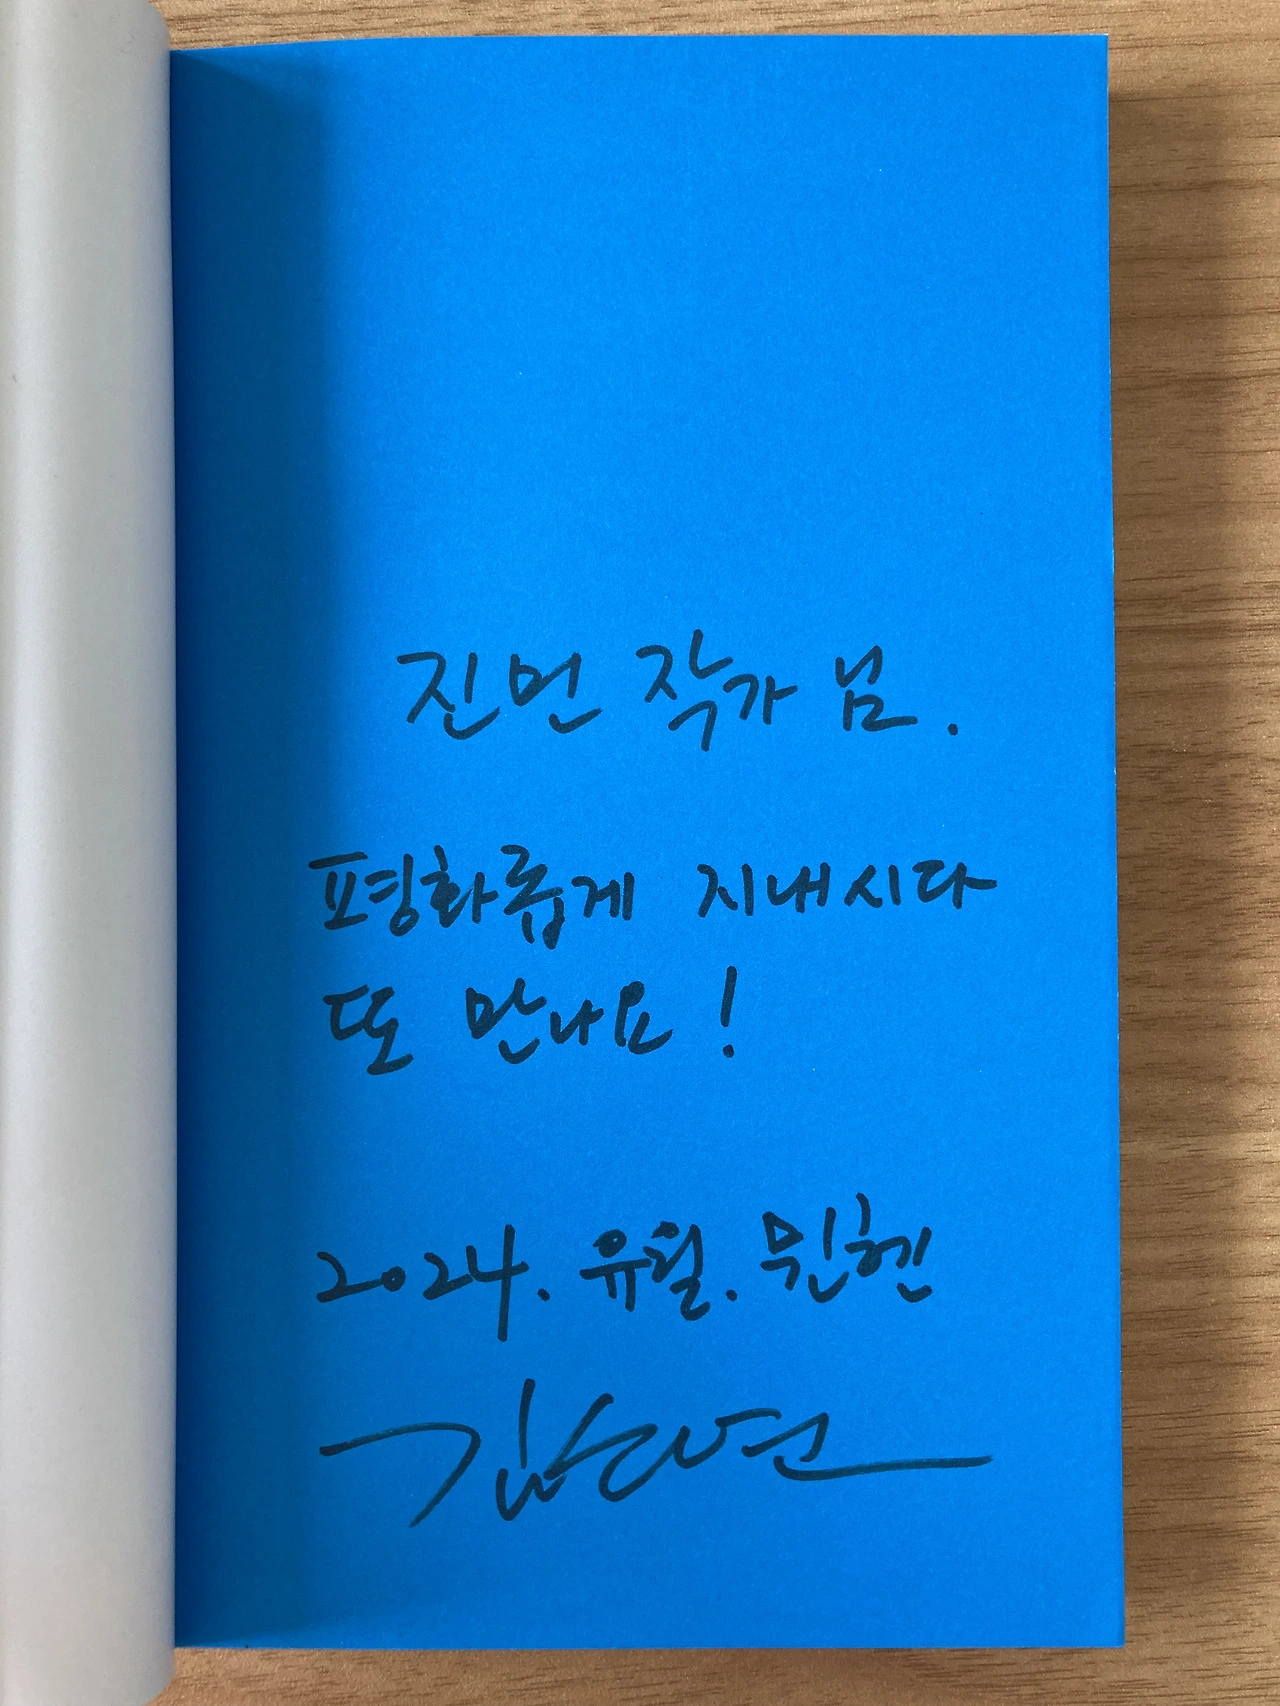 진먼 작가 님.
평화롭게 지내시다
또 만나요!
2024. 유월. 뮌헨